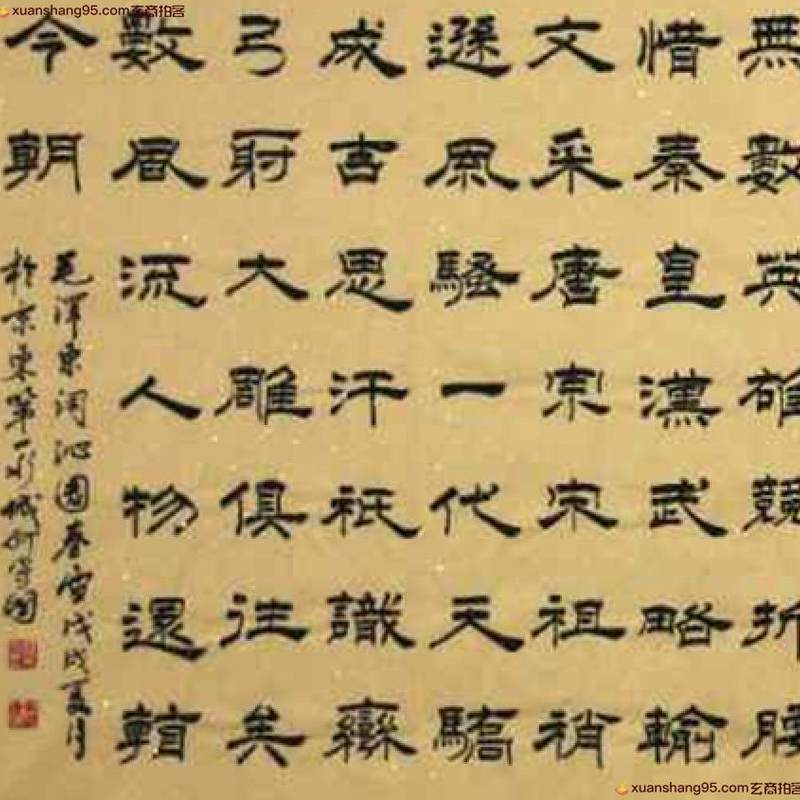 xuanshang95.com玄商拍客
無數英雄競折腰
惜秦皇漢武略輸
文采唐宗宋祖稍
遜風騷一代天驕
成吉思汗祇識彎
弓射大雕俱往矣
數風流人物還看
今朝
毛澤東詞沁園春雪戊戌夏月
於京東第一
xuanshang95.com玄商拍客